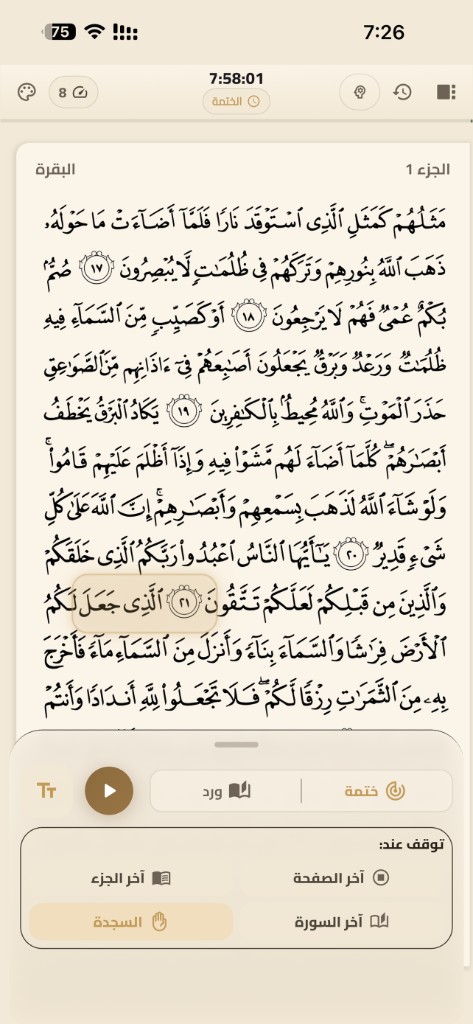 75
7:26
8
7:58:01
الختمة
الجزء 1
البقرة
مَثَلُهُمْ كَمَثَلِ ٱلَّذِى ٱسْتَوْقَدَ نَارًا فَلَمَّآ أَضَآءَتْ مَا حَوْلَهُۥ
ذَهَبَ ٱللَّهُ بِنُورِهِمْ وَتَرَكَهُمْ فِى ظُلُمَٰتٍ لَّا يُبْصِرُونَ ١٧ صُمٌّۢ
بُكْمٌ عُمْىٌ فَهُمْ لَا يَرْجِعُونَ ١٨ أَوْ كَصَيِّبٍ مِّنَ ٱلسَّمَآءِ فِيهِ
ظُلُمَٰتٌ وَرَعْدٌ وَبَرْقٌ يَجْعَلُونَ أَصَٰبِعَهُمْ فِىٓ ءَاذَانِهِم مِّنَ ٱلصَّوَٰعِقِ
حَذَرَ ٱلْمَوْتِ ۚ وَٱللَّهُ مُحِيطٌۢ بِٱلْكَٰفِرِينَ ١٩ يَكَادُ ٱلْبَرْقُ يَخْطَفُ
أَبْصَٰرَهُمْ ۖ كُلَّمَآ أَضَآءَ لَهُم مَّشَوْا۟ فِيهِ وَإِذَآ أَظْلَمَ عَلَيْهِمْ قَامُوا۟ ۚ
وَلَوْ شَآءَ ٱللَّهُ لَذَهَبَ بِسَمْعِهِمْ وَأَبْصَٰرِهِمْ ۚ إِنَّ ٱللَّهَ عَلَىٰ كُلِّ
شَىْءٍ قَدِيرٌ ٢٠ يَٰٓأَيُّهَا ٱلنَّاسُ ٱعْبُدُوا۟ رَبَّكُمُ ٱلَّذِى خَلَقَكُمْ
وَٱلَّذِينَ مِن قَبْلِكُمْ لَعَلَّكُمْ تَتَّقُونَ ٢١ ٱلَّذِى جَعَلَ لَكُمُ
ٱلْأَرْضَ فِرَٰشًا وَٱلسَّمَآءَ بِنَآءً وَأَنزَلَ مِنَ ٱلسَّمَآءِ مَآءً فَأَخْرَجَ
بِهِۦ مِنَ ٱلثَّمَرَٰتِ رِزْقًا لَّكُمْ ۖ فَلَا تَجْعَلُوا۟ لِلَّهِ أَندَادًا وَأَنتُمْ
ختمة
ورد
TT
توقف عند:
آخر الصفحة
آخر الجزء
آخر السورة
السجدة